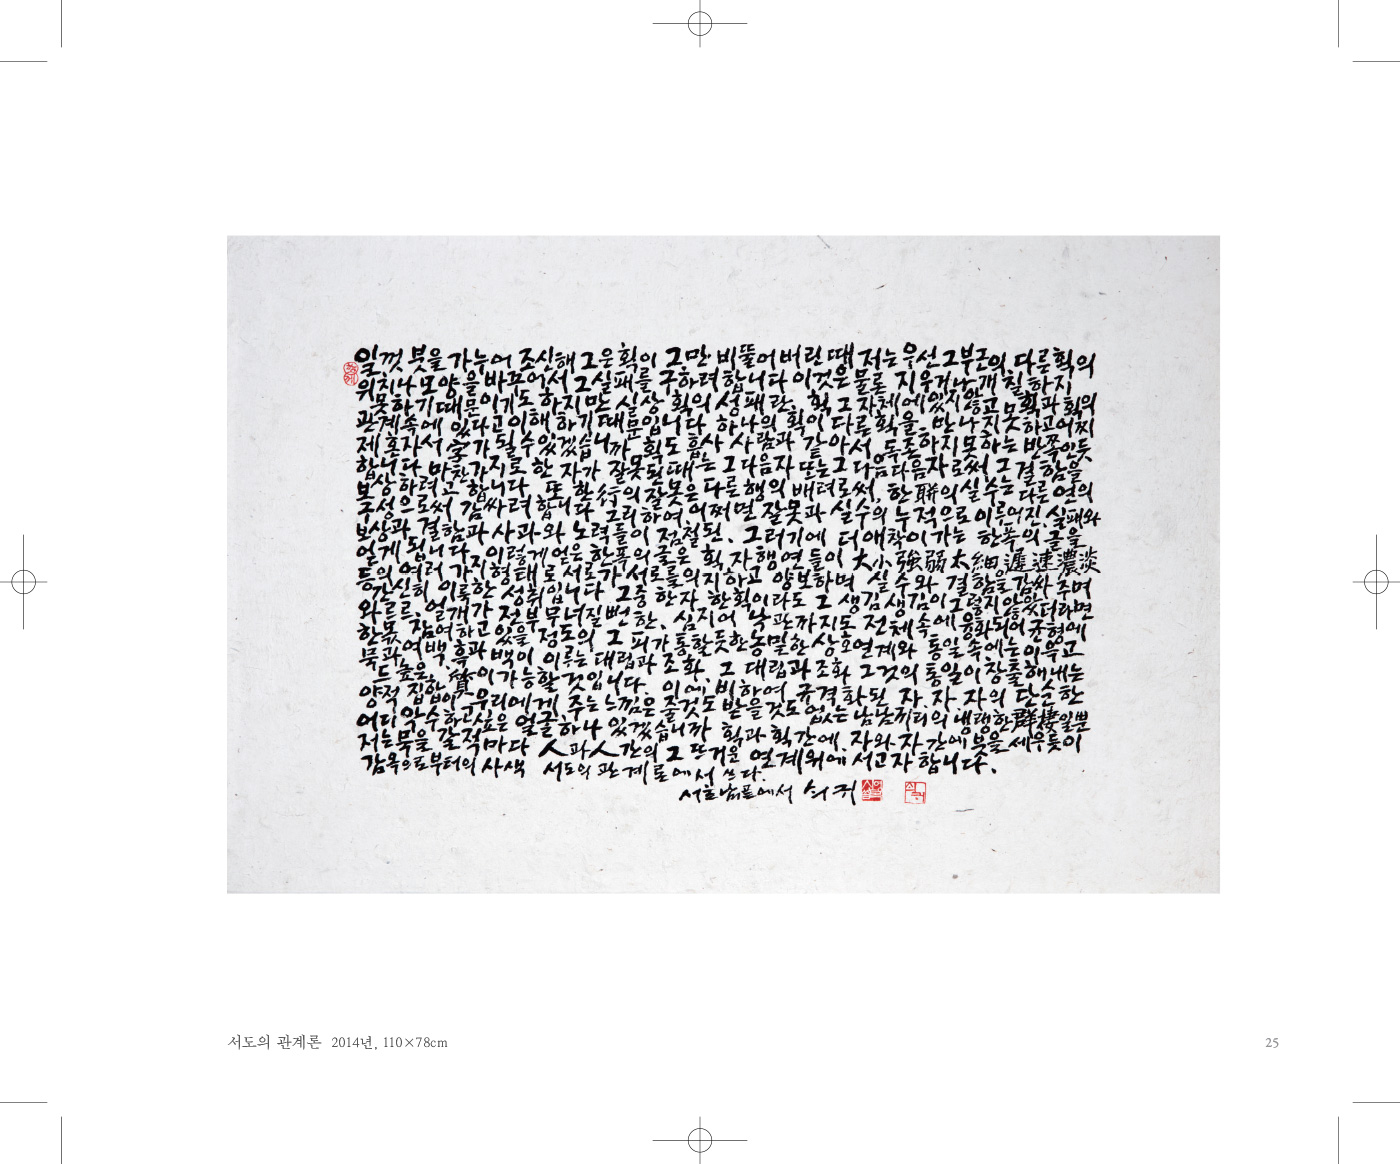 일껏 붓을 가누어 조신해 그은 획이 그만 비뚤어버린 때 저는 우선 그 부근의 다른 획의
위치나 모양을 바꾸어서 그 실패를 구하려 합니다 이것은 물론 지우거나 개칠하지
못하기 때문이기도 하지만 실상 획의 성패란, 획 그 자체에 있지 않고 획과 획의
관계속에 있다고 이해하기 때문입니다. 하나의 획이 다른 획을 만나지 못하고 어찌
제 혼자서 字가 될수 있겠습니까 획도 흡사 사람과 같아서 독존하지 못하는 반쪽인듯
합니다 마찬가지로 한 자가 잘못된 때는 그 다음자 또는 그 다음다음자로써 그 결함을
보상하려고 합니다 또 한 行의 잘못은 다른 행의 배려로써, 한 聯의 실수는 다른 연의
구성으로써 감싸려 합니다 그리하여 어쩌면 잘못과 실수의 누적으로 이루어진, 실패와
보상과 결함과 사과와 노력들이 점철된, 그러기에 더 애착이 가는 한폭의 글을
얻게 됩니다. 이렇게 얻은 한폭의 글은 획 자 행 연들이 大小強弱太細遲速濃淡
등의 여러 가지 형태로 서로가 서로를 의지하고 양보하며 실수와 결함을 감싸주며
간신히 이룩한 성취입니다 그중 한자 한획이라도 그 생김생김이 그렇지 않았더라면
와르르 얼개가 전부 무너질뻔한, 심지어 낙관까지도 전체속에 융화되어 균형에
한몫 참여하고 있을 정도의 그 피가 통할듯한 농밀한 상호연계와 통일속에는 이윽고
묵과 여백, 흑과 백이 이루는 대립과 조화, 그 대립과 조화 그것의 통일이 창출해내는
드높은 質이 가능할 것입니다. 이에 비하여 규격화된 자, 자, 자의 단순한
양적 집합이 우리에게 주는 느낌은 줄것도 받을것도 없는 남남끼리의 냉랭한 群棲일뿐
어디 악수하고싶은 얼굴하나 있겠습니까 획과 획간에, 자와 자간에 붓을 세우듯이
저는 묵을 갈적마다 人과 人간의 그 뜨거운 연계위에 서고자 합니다.
감옥으로부터의 사색 서도의 관계론에서 쓰다.
쇠귀
서도의 관계론 2014년, 110×78cm
25